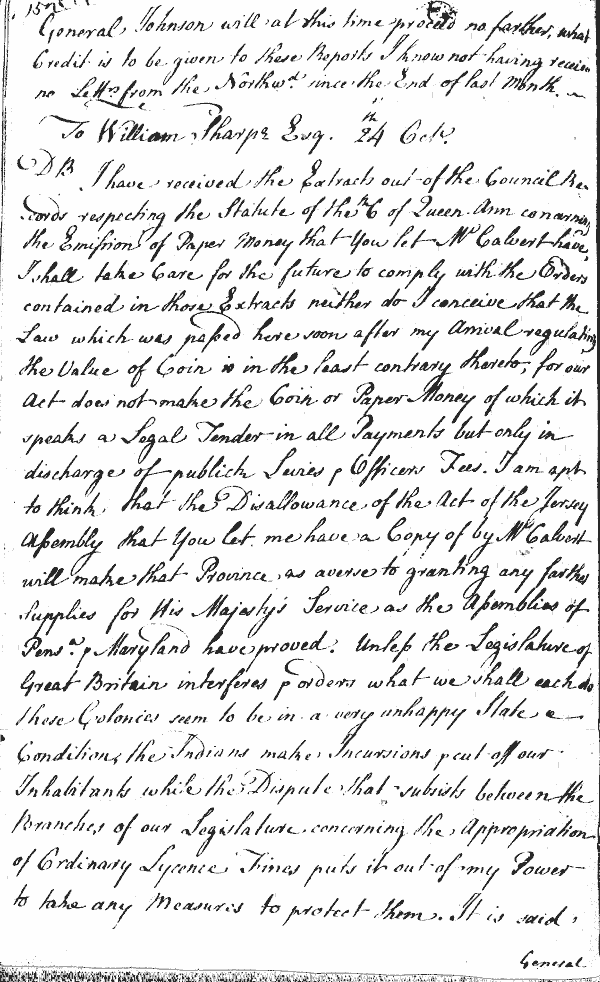 General Johnson will at this time proceed no farther, what
Credit is to be given to these Reports I know not having receiv
no Lettrs from the Northwd. since the End of last Month.
To William Sharpe Esq. 24th Octr.
DB I have received the Extracts out of the Council Re-
cords respecting the Statute of the 6th of Queen Ann concerning
the Emission of Paper Money that You let Mr Calvert have,
I shall take Care for the future to comply with the Orders
contained in those Extracts neither do I conceive that the
Law which was passed here soon after my Arrival regulating
the Value of Coin is in the least contrary thereto, for our
Act does not make the Coin or Paper Money of which it
speaks a Legal Tender in all Payments but only in
discharge of publick Levies & Officers Fees. I am apt
to think that the Disallowance of the Act of the Jersey
Assembly that You let me have a Copy of by Mr Calvert
will make that Province as averse to granting any farther
Supplies for His Majesty's Service as the Assemblies of
Pensa. & Maryland have proved. Unless the Legislature of
Great Britain interferes & orders what we shall each do
these Colonies seem to be in a very unhappy State &
Condition, the Indians make Incursions & cut off our
Inhabitants while the Dispute that subsists between the
Branches of our Legislature concerning the Appropriation
of Ordinary Lycence Fines puts it out of my Power
to take any Measures to protect them. It is said
General